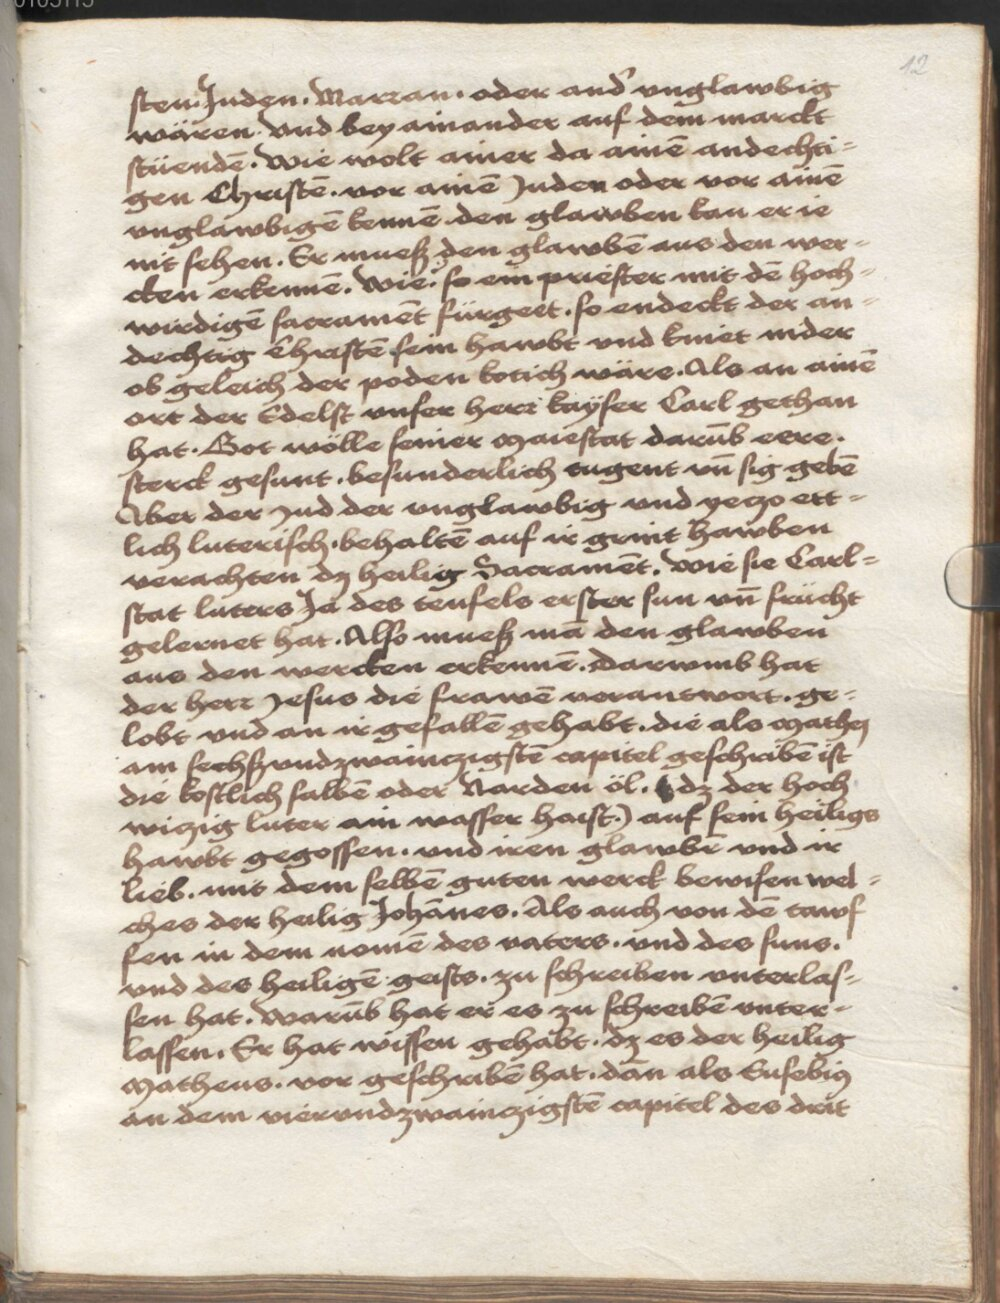 12
sten. Juden. Marran. oder and' vnglawbig
wären. Vnd bey ainander auf dem marckt
stüendē. Wie wolt ainer da ainē andechti-
gen Christē. vor ainē Juden oder vor ainē
vnglawbigē kennē. den glawben kan er ie
nit sehen. Er mueß den glawbē aus den wer-
cken erkennē. Wie? so ein priester mit dē hoch-
wirdigē sacramēt fürgeet. so endeckt der an-
dechtig Christē sein hawbt vnd kniet nider
ob geleich der poden kotich wäre. Als an ainē
ort der Edelst vnser herr kayser Carl gethan
hat. Got wölle seiner Maiestat darūb eere.
sterck gesunt. besunderlich tugent vn̄ sig gebē
Aber der Jud der vnglawbig vnd yetzo ett-
lich luterisch. behaltē auf ir grint hawben
verachten dz heilig Sacramēt. Wie sie Carl-
stat luters Ja des teufels erster sun vn̄ frücht
gelernet hat. Also mueß mā den glawben
aus den wercken erkennē. Darwmb hat
der herr Jesus die frawē verantwort. ge-
lobt vnd an ir gefallē gehabt. die als Mathei
am sechßvndzwainczigstē capitel geschribē ist
die kostlich salbē oder Narden öl. (dz der hoch
wiczig luter ain wasser haist) auf sein heiligs
hawbt gegossen. vnd iren glawbē vnd ir
lieb. mit dem selbē guten werck bewisen wel-
ches der heilig Johānes. Als auch von dē tawf
fen in dem nomē des vaters. vnd des suns.
vnd des heiligē geists. zu schreiben vnterlas-
sen hat. Warūb hat er es zu schreibē vnter-
lassen. Er hat wissen gehabt. dz es der heilig
Matheus. vor geschribē hat. dan als Eusebius
an dem viervndzwainczigstē capitel des drit